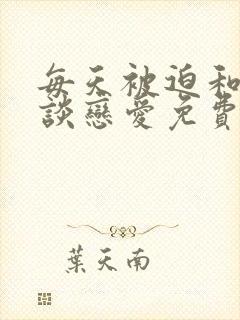 每天被迫和
談戀愛免費
葉天南